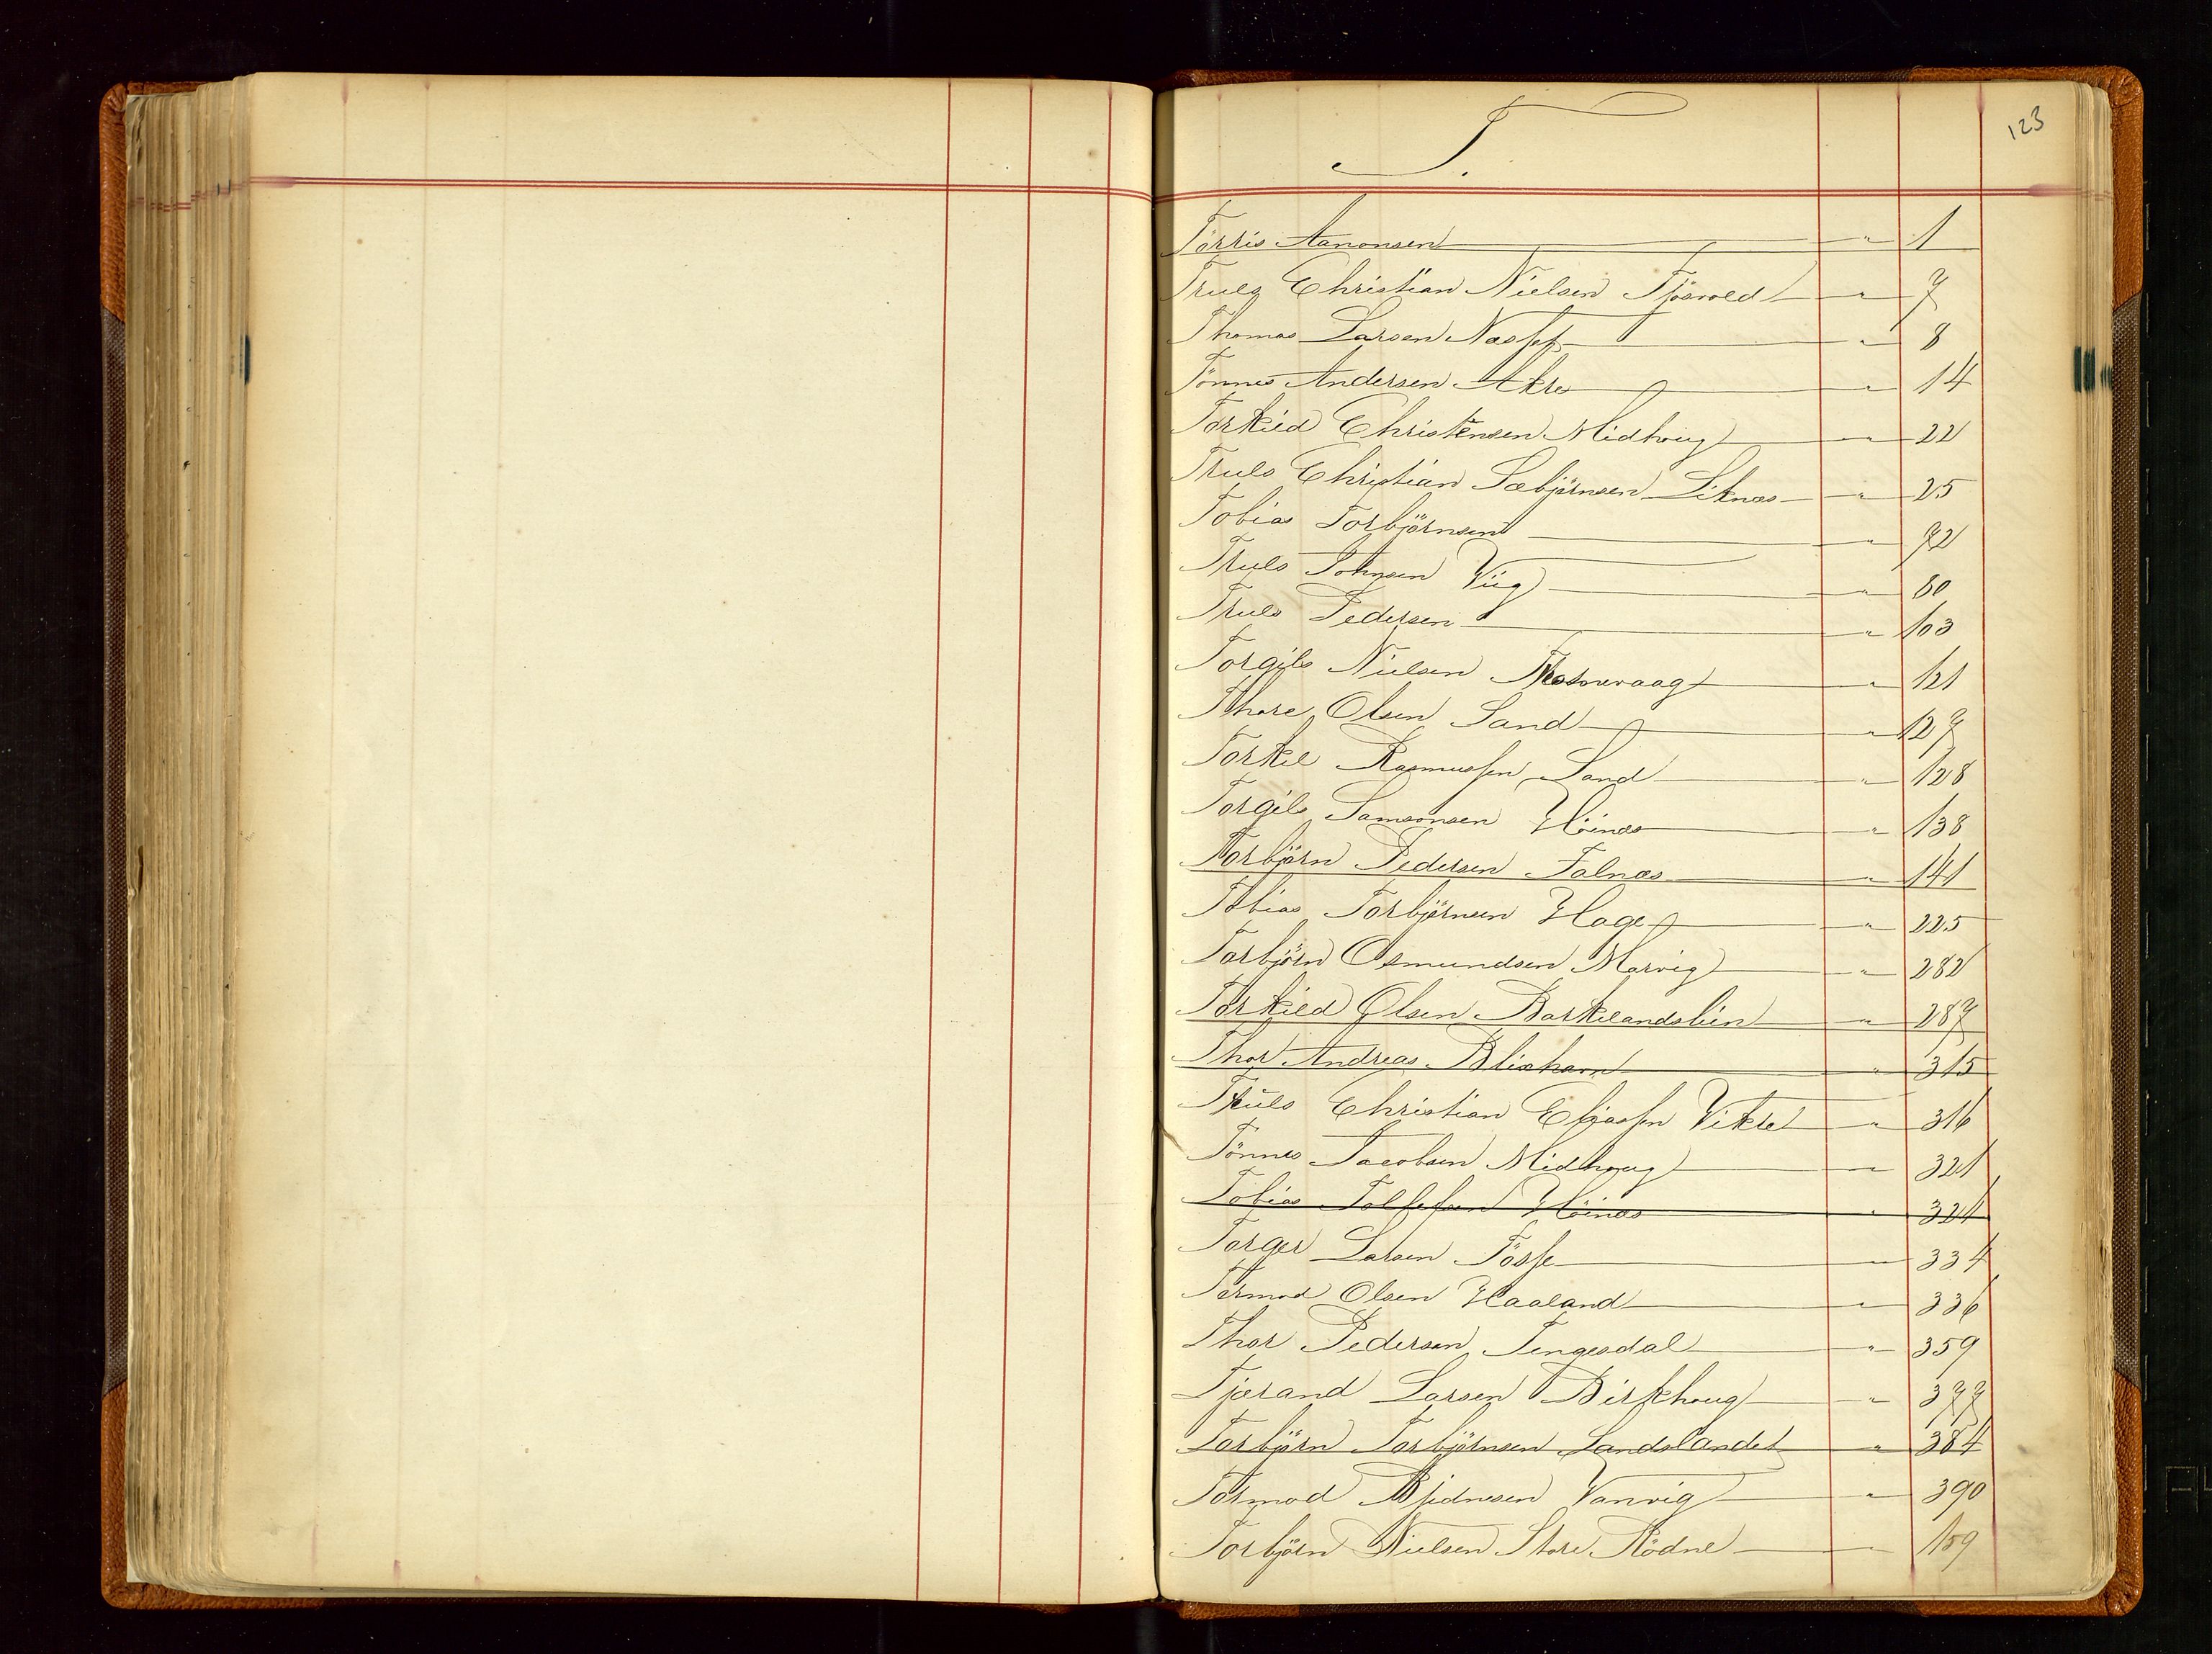 123
T.
Törris Aanonsen " 1
Truls Christian Nielsen Fjösvold " 7
Thomas Larsen Næsset " 8
Tönnes Andersen Akre " 14
Torkild Christensen Midhoug " 22
Truls Christian Sæbjörnsen Liknæs " 25
Tobias Torbjörnsen " 72
Truls Johnsen Viig " 80
Truls Pedersen " 103
Torgils Nielsen " 121
Thore Olsen Sand " 127
Torkel Rasmussen Sand " 128
Torgils Samsonsen Höines " 138
Torbjörn Pedersen Falnæs " 141
Tobias Torbjörnsen Hage " 225
Torbjörn Osmundsen Marvig " 282
Torkild Olsen Barkelandsliin " 287
Thor Andreas Blixhavn " 315
Truls Christian Eliassen Vikse " 316
Tönnes Jacobsen Midhoug " 321
Tobias Tollefsen Höinæs " 324
Torger Larsen Tösse " 334
Tormod Olsen Haaland " 336
Thor Pedersen Tengesdal " 359
Tjerand Larsen Birkhoug " 377
Torbjörn Torbjörnsen Sandslandet " 384
Tormod Bjödnesen Vanvig " 390
Torbjörn Nielsen Store Rödne " 159